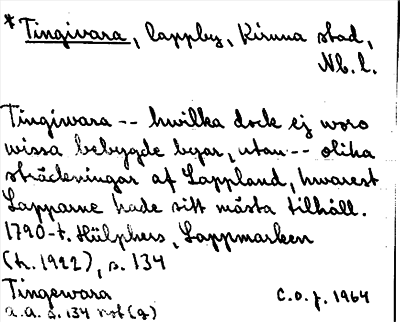 *Tingivara, lappby, Kiruna stad,
Nb. l.
Tingiwara -- hwilka dock ej woro
wissa bebygde byar, utan -- olika
sträckningar af Lappland, hwarest
Lapparne hade sitt mästa tilhåll.
1790-t. Hülphers, Lappmarken
(tr. 1922), s. 134
Tingewara C.O.J. 1964
a.a. s. 134 not (g)